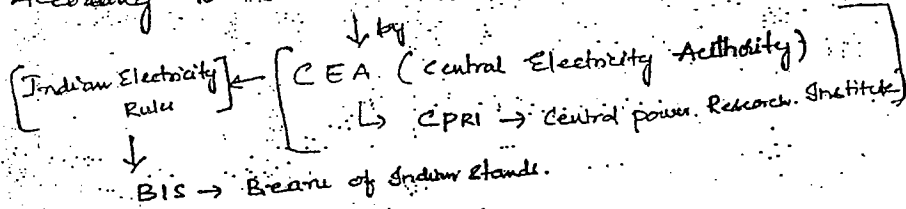 According to the
↓ by
[Indian Electricity Rules] ← [CEA (Central Electricity Authority)
↳ CPRI → Central power. Research. Institute]
↓
BIS → Beare of Indian Stands.